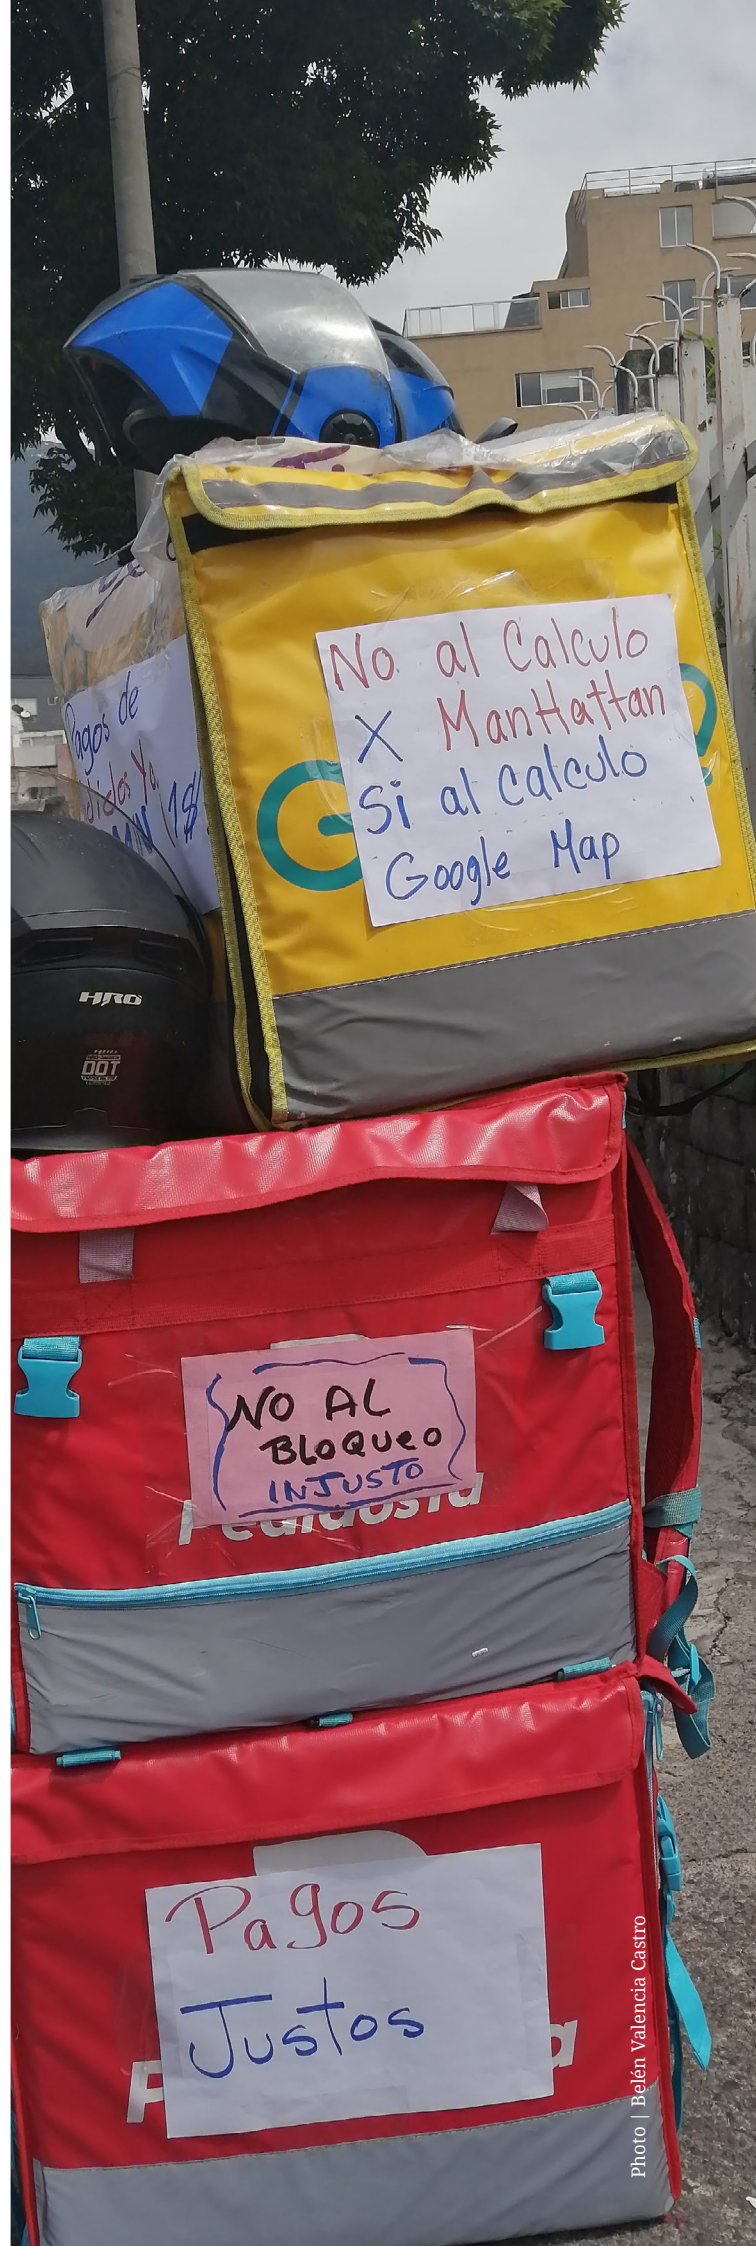 No al Calculo
X ManHattan
Si al Calculo
Google Map
Pagos de
Ya
(1$
HRO
DOT
NO AL
BLOQUEO
INJUSTO
Pagos
Justos
Photo | Belén Valencia Castro